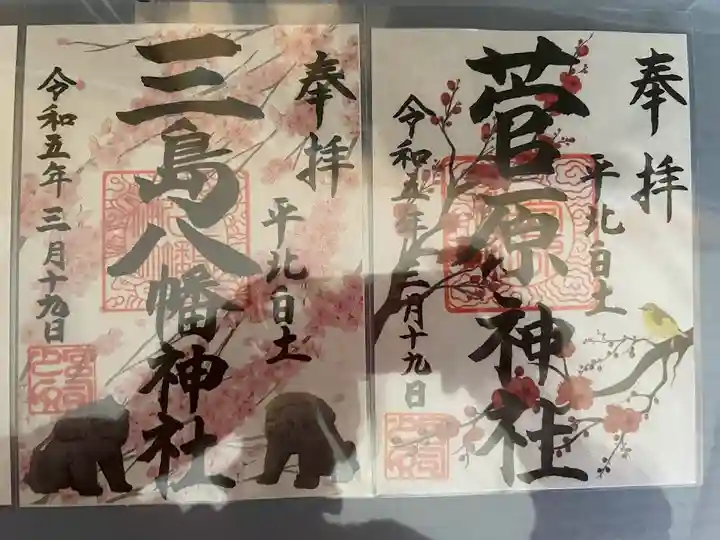 奉拝
平北白土
菅原神社
令和五年三月十九日
奉拝
平北白土
三島八幡神社
令和五年三月十九日